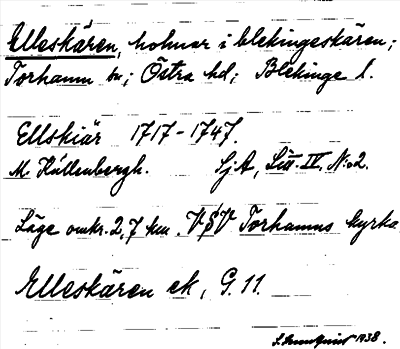 Elleskären, holmar i blekingeskären;
Torhamn sn; Östra hd; Blekinge l.
Ellskiär 1717-1747.
M Hållenbergh. SjA, Litt. IV. No 2.
Läge omkr. 2,7 km VSV Torhamns kyrka
Elleskären ek, G. 11.
1938.